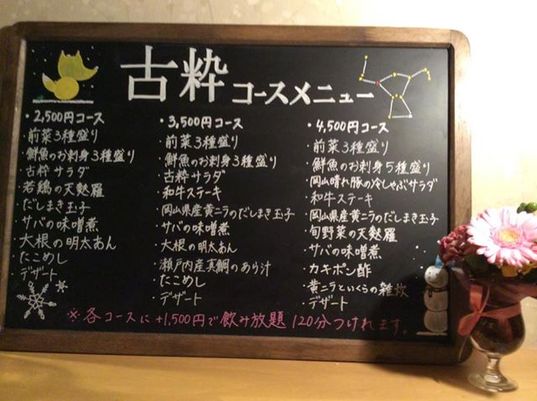 古粋 コースメニュー
・2,500円コース
・前菜3種盛り
・鮮魚のお刺身3種盛り
・古粋サラダ
・若鶏の天麩羅
・だしまき玉子
・サバの味噌煮
・大根の明太あん
・たこめし
・デザート
・3,500円コース
・前菜3種盛り
・鮮魚のお刺身3種盛り
・古粋サラダ
・和牛ステーキ
・岡山県産黄ニラのだしまき玉子
・サバの味噌煮
・大根の明太あん
・瀬戸内産真鯛のあり汁
・たこめし
・デザート
・4,500円コース
・前菜3種盛り
・鮮魚のお刺身5種盛り
・岡山晴れ豚の冷しゃぶサラダ
・和牛ステーキ
・岡山県産黄ニラのだしまき玉子
・旬野菜の天麩羅
・サバの味噌煮
・カキポン酢
・黄ニラといくらの雑炊
・デザート
※各コースに+1,500円で飲み放題120分つけれます。